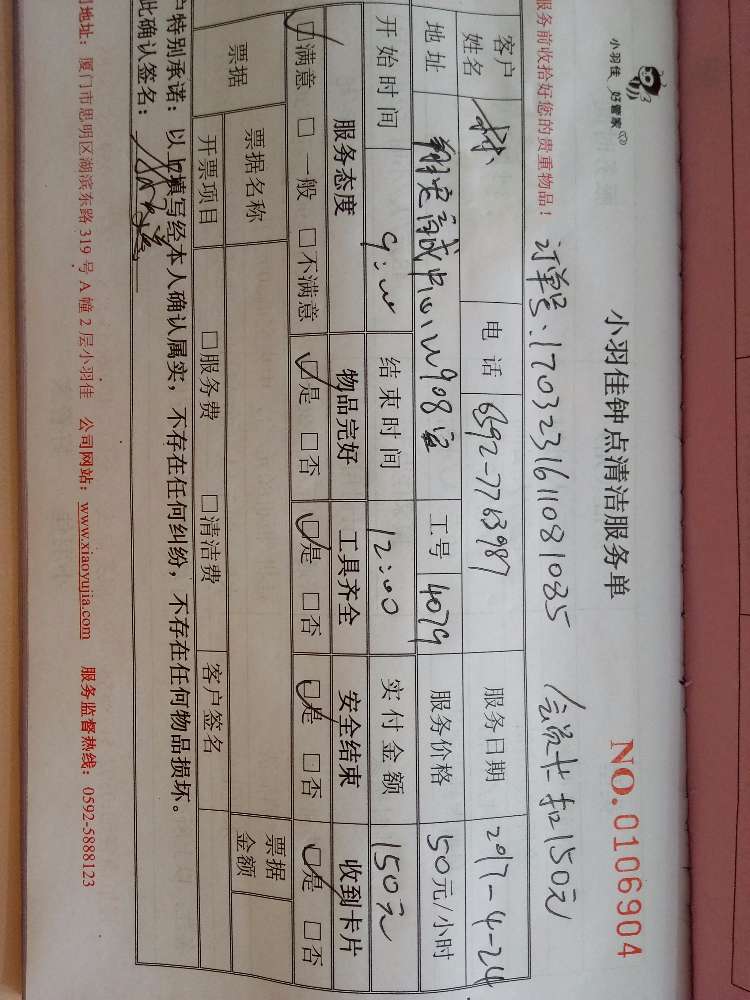 小羽佳 好管家
小羽佳钟点清洁服务单
NO.0106904
服务前收拾好您的贵重物品！ 订单号：17032316110810835 会员卡扣150元
客户姓名 林 电话 6592-7763987 服务日期 2017-4-24
地址 商城中心 908室 工号 4079 服务价格 50元/小时
开始时间 9:00 结束时间 12:00 实付金额 150元
服务态度 物品完好 工具齐全 安全结束 收到卡片
☑满意 □一般 □不满意 ☑是 □否 ☑是 □否 ☑是 □否 ☑是 □否
票据 票据名称 票据金额
开票项目 □服务费 □清洁费 客户签名
户特别承诺：以上填写经本人确认属实，不存在任何纠纷，不存在任何物品损坏。
此确认签名：
司地址：厦门市思明区湖滨东路319号A幢2层小羽佳 公司网站：www.xiaoyujia.com 服务监督热线：0592-5888123